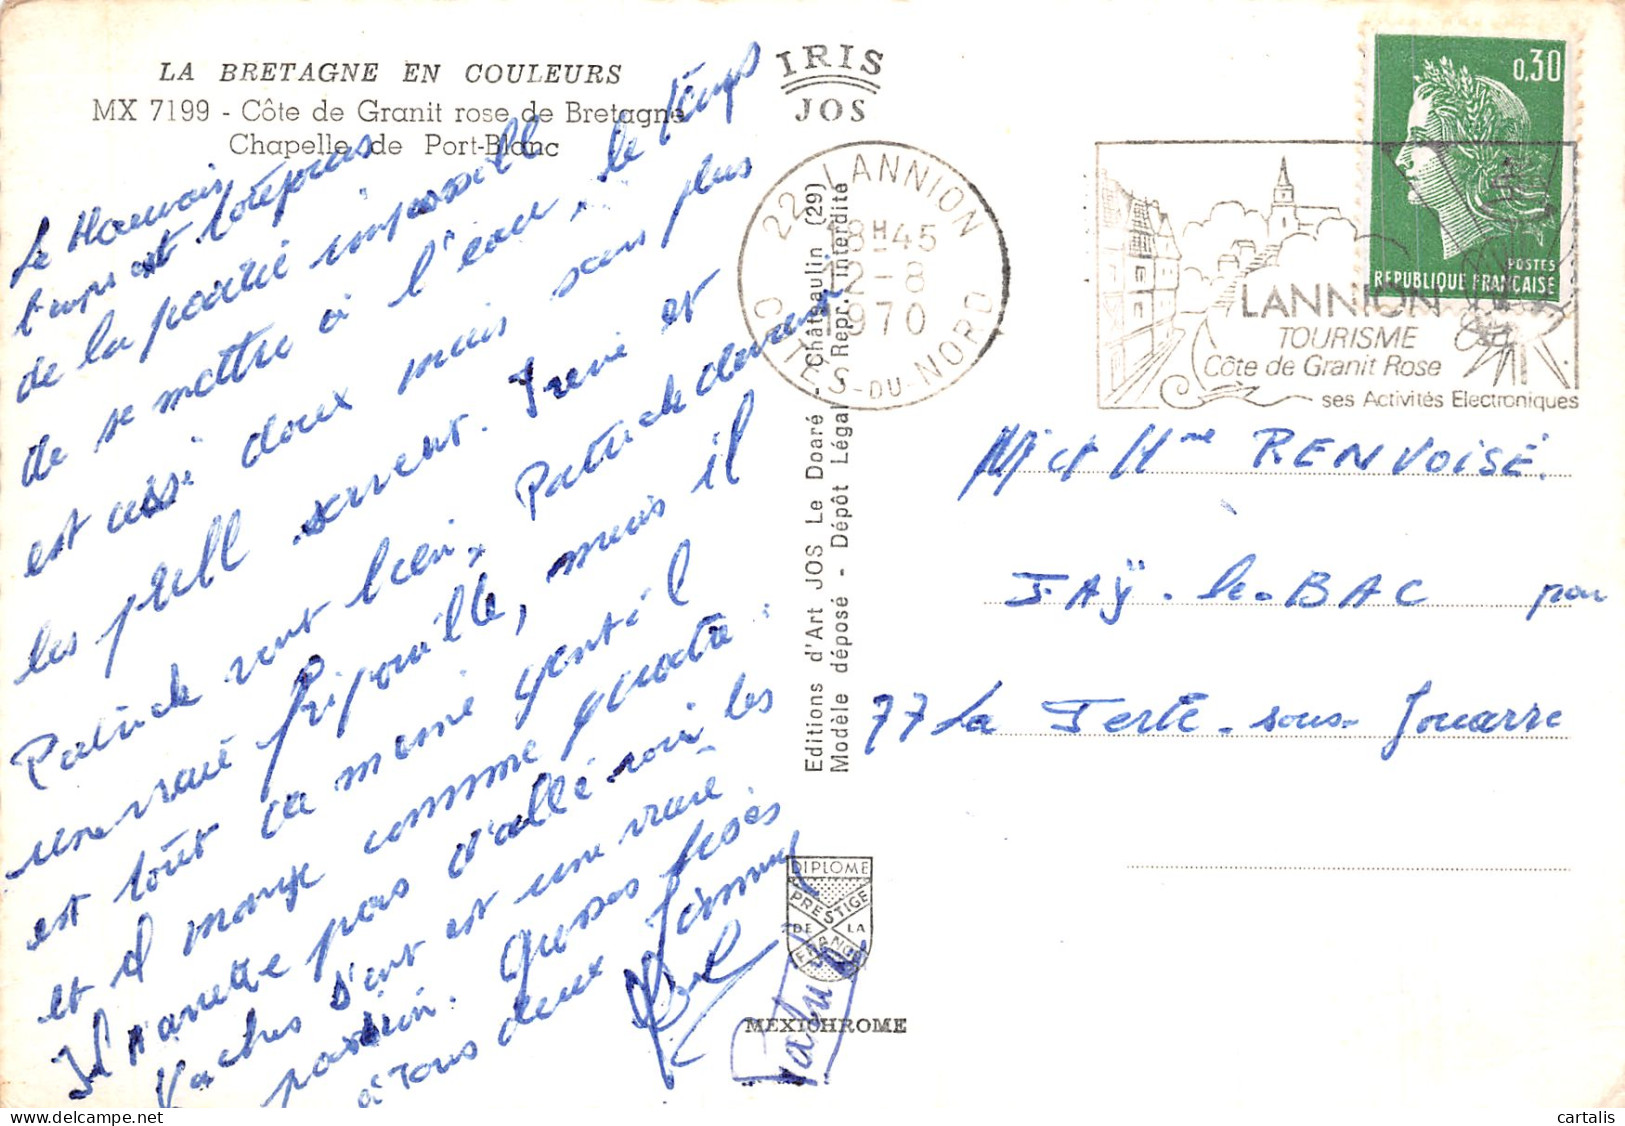 LA BRETAGNE EN COULEURS
MX 7199 - Côte de Granit rose de Bretagne
Chapelle de Port-Blanc
IRIS
JOS
Le Mauvais
temps est
de la partie impossible
de se mettre à l'eau, le temps
est aussi doux mais sans plus
les pull servent. Irène et
Patrick vont bien, Patrick devient
une vraie fripouille, mais il
est tout de même gentil
et il mange comme quatre.
Il n'arrette pas d'allé voir les
Vaches s'ent est une vraie
passion. Grosses bises
à tous deux
22 LANNION
18H45
12-8
1970
COTES-DU-NORD
LANNION
TOURISME
Côte de Granit Rose
ses Activités Electroniques
0,30
POSTES
REPUBLIQUE FRANÇAISE
Mr et Mme RENVOISÉ.
JAŸ-le-BAC par
77 La Ferté-sous-Jouarre
Editions d'Art JOS Le Doaré - Châteaulin (29)
Modèle déposé - Dépôt Légal - Repr. interdite
DIPLOME
PRESTIGE
DE LA
FRANCE
MEXICHROME
cartalis